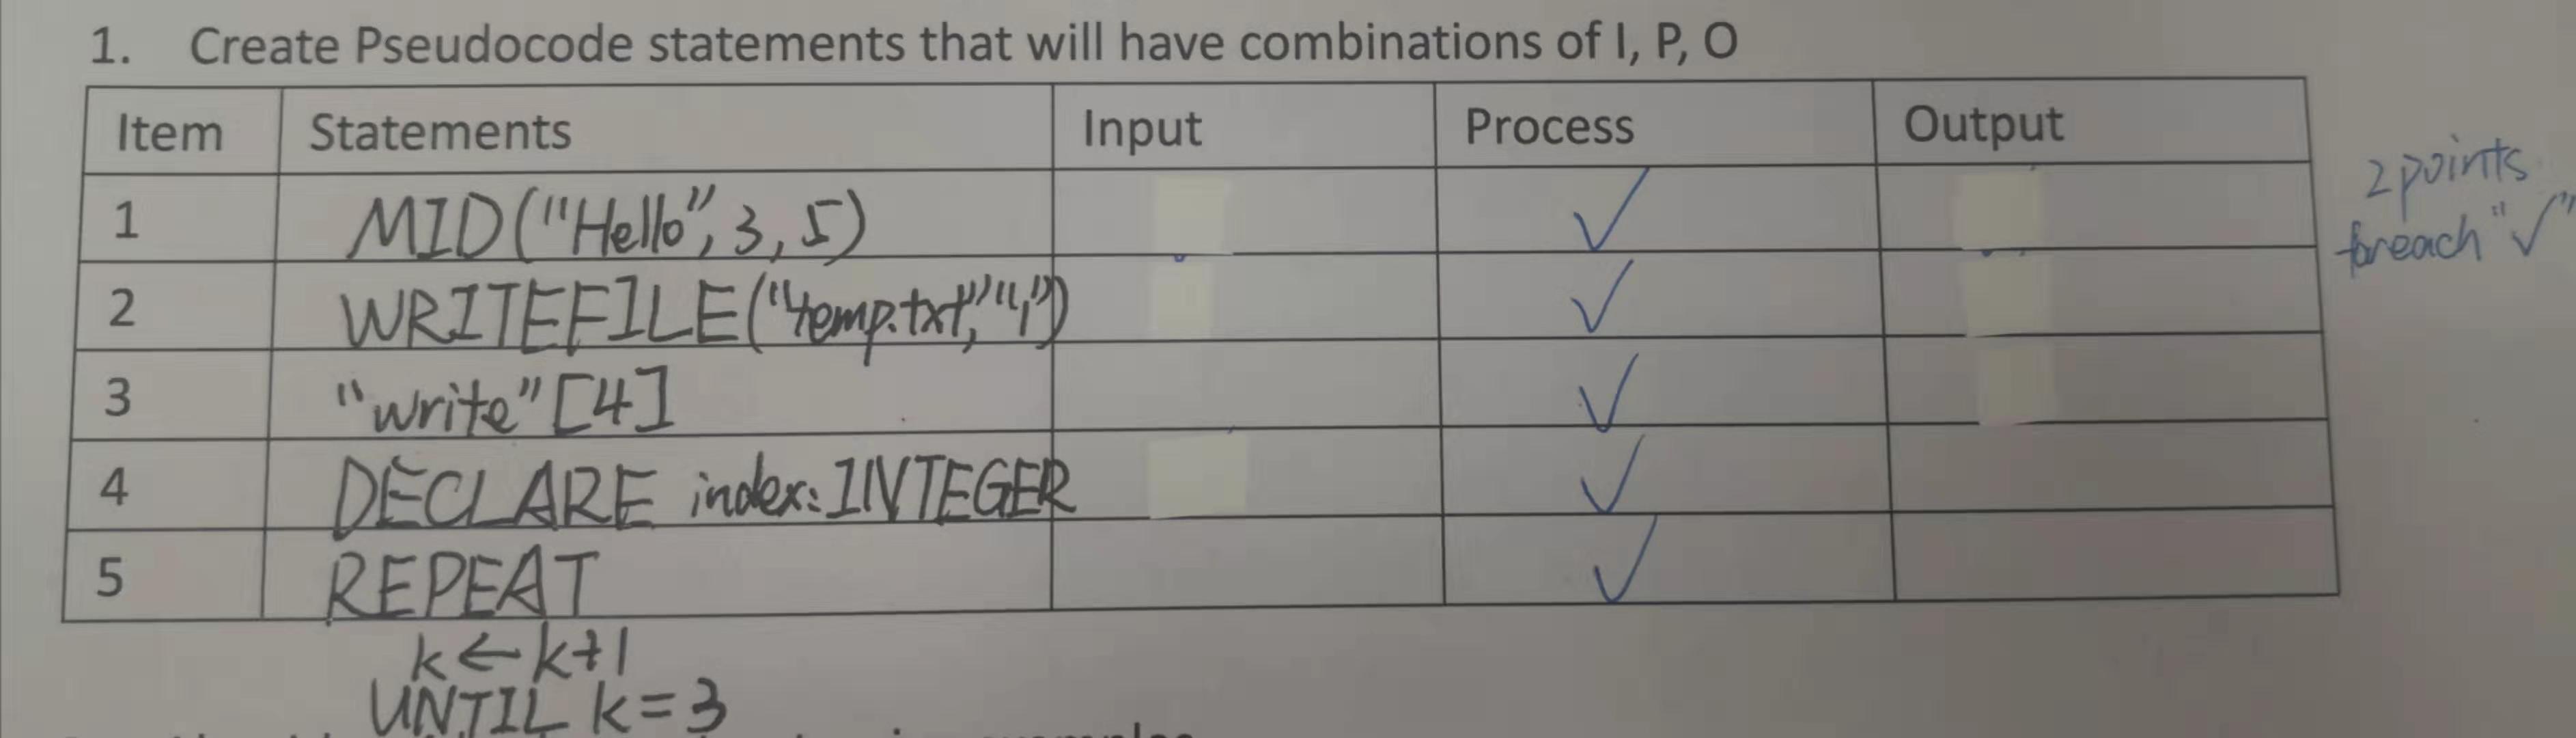 1. Create Pseudocode statements that will have combinations of I, P, O
Item Statements Input Process Output
1 MID("Hello", 3, 5) ✓
2 points
foreach "✓"
2 WRITEFILE("temp.txt", "1") ✓
3 "write"[4] ✓
4 DECLARE index: INTEGER ✓
5 REPEAT ✓
k ← k+1
UNTIL k = 3